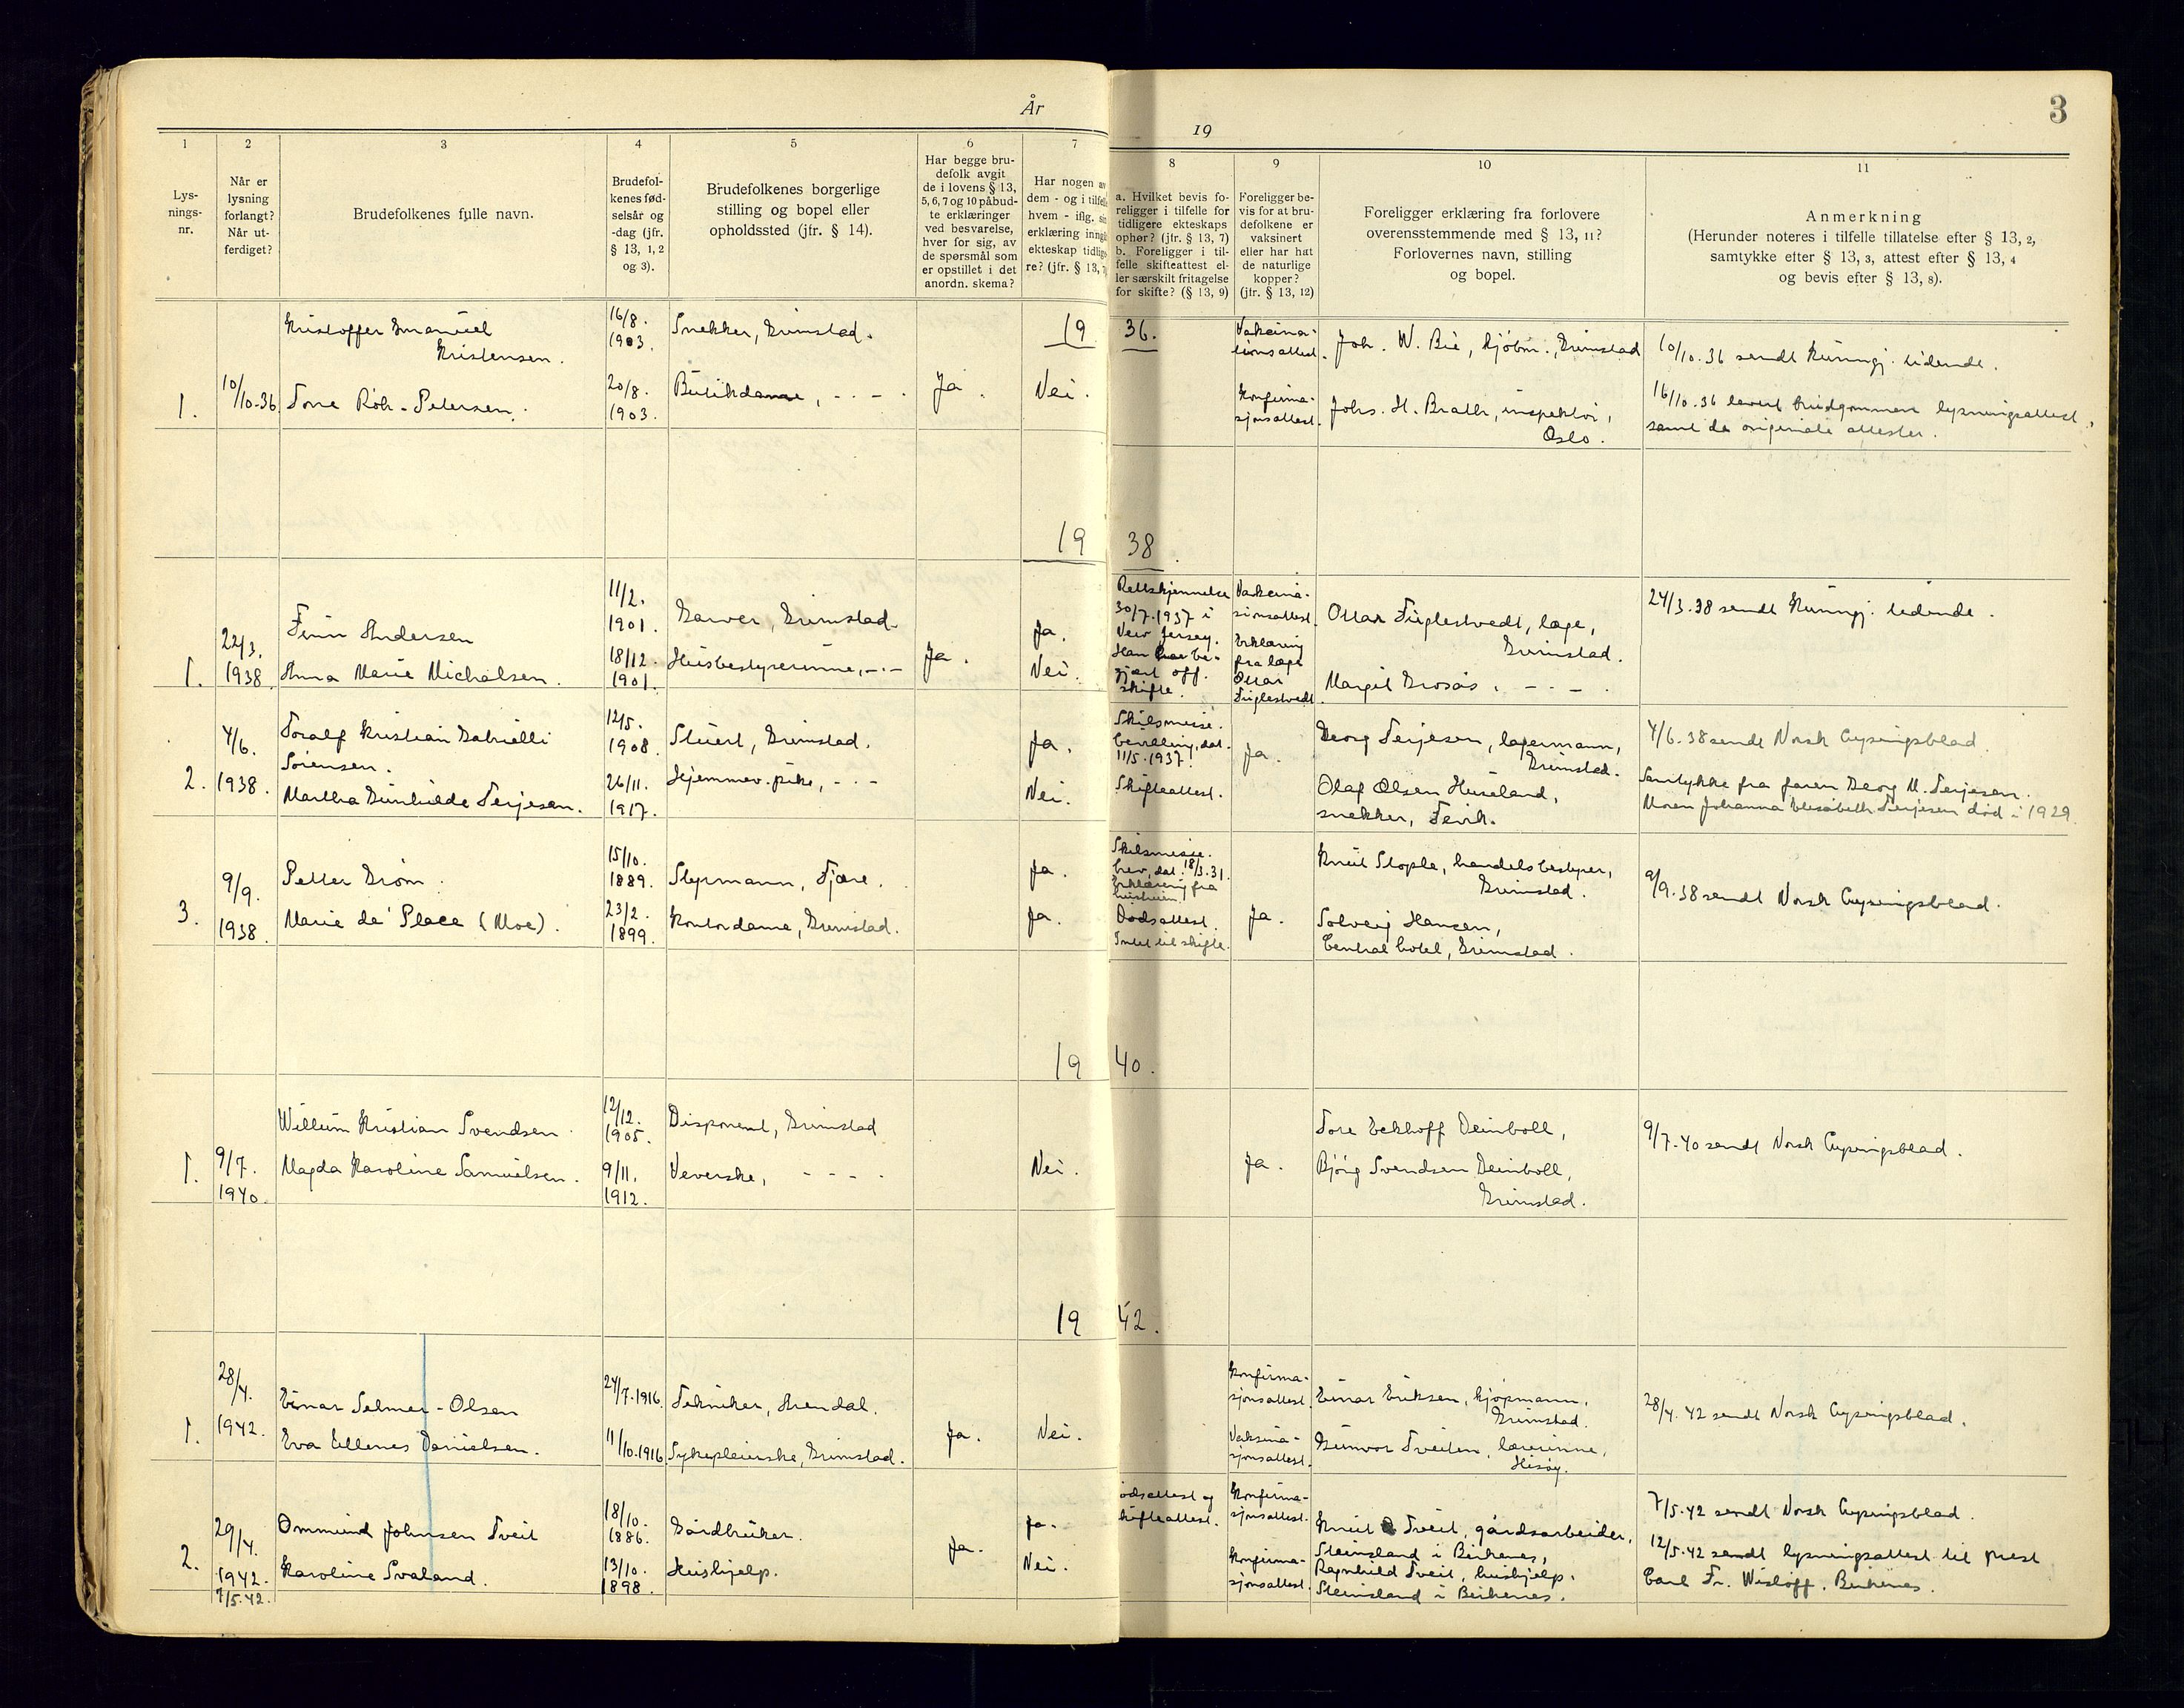 År
19
3
1
2
3
4
5
6
7
8
9
10
11
Lys-
nings-
nr.
Når er
lysning
forlangt?
Når ut-
ferdiget?
Brudefolkenes fulle navn.
Brudefol-
kenes fød-
selsår og
-dag (jfr.
§ 13, 1, 2
og 3).
Brudefolkenes borgerlige
stilling og bopel eller
opholdssted (jfr. § 14).
Har begge bru-
defolk avgit
de i lovens § 13,
5, 6, 7 og 10 påbud-
te erklæringer
ved besvarelse,
hver for sig, av
de spørsmål som
er opstillet i det
anordn. skema?
Har nogen av
dem - og i tilfelle
hvem - iflg. sin
erklæring inngå
ekteskap tidlig
re? (jfr. § 13, 7
a. Hvilket bevis fo-
religger i tilfelle for
tidligere ekteskaps
ophør? (jfr. § 13, 7)
b. Foreligger i til-
felle skifteattest el-
ler særskilt fritagelse
for skifte? (§ 13, 9)
Foreligger be-
vis for at bru-
defolkene er
vaksinert
eller har hat
de naturlige
kopper?
(jfr. § 13, 12)
Foreligger erklæring fra forlovere
overensstemmende med § 13, 11?
Forlovernes navn, stilling
og bopel.
Anmerkning
(Herunder noteres i tilfelle tillatelse efter § 13, 2,
samtykke efter § 13, 3, attest efter § 13, 4
og bevis efter § 13, 8).
19 36.
1.
10/10-36
Kristoffer Emanuel
Kristensen.
Tone Röh-Petersen.
16/8.
1903.
20/8.
1903.
Snekker, Grimstad.
Butikdame, - - - .
Ja.
Nei.
Vaksina-
tionsattest.
Konfirma-
sjonsattest.
Joh. W. Bie, kjöbm., Grimstad
Johs. H. Brath, inspektör,
Oslo.
10/10.36 sendt Kunngj. tidende.
16/10.36 levert brudgommen lysningsattest,
samt de originale attester.
19 38.
1.
22/3.
1938.
Finn Andersen
Anna Marie Michalsen.
11/2.
1901.
18/12.
1901.
Garver, Grimstad.
Husbestyrerinne, -.-
Ja.
Ja.
Nei.
Rettskjennelse
30/7.1937 i
New Jersey.
Han har be-
gjært off.
skifte.
Vaksina-
sjonsattest.
Erklæring
fra læge
Ottar
Fuglestvedt.
Ottar Fuglestvedt, læge,
Grimstad.
Margit Grosås, - - - .
24/3.38 sendt Kunngj. tidende.
2.
4/6.
1938.
Toralf Kristian Gabrielli
Sörensen.
Martha Gunhilde Terjesen.
12/5.
1908.
26/11.
1917.
Stuert, Grimstad.
Hjemmev. pike, - - -
Ja.
Nei.
Skilsmisse-
bevilling, dat.
11/5.1937.
Skifteattest.
Ja.
Georg Terjesen, lagermann,
Grimstad.
Olaf Olsen Huseland,
snekker, Fevik.
4/6.38 sendt Norsk Lysingsblad.
Samtykke fra faren Georg M. Terjesen.
Moren Johanna Elisabeth Terjesen död i 1929.
3.
9/9.
1938.
Petter Gröm.
Marie de Place (Moe).
15/10.
1889.
23/2.
1899.
Styrmann, Fjære.
Kontordame, Grimstad.
Ja.
Ja.
Skilsmisse-
brev, dat. 18/3.31.
Erklæring fra
Dödsattest.
Intet til skifte.
Ja.
Knut Stople, handelsbestyrer,
Grimstad.
Solveig Hansen,
Central hotel, Grimstad.
9/9.38 sendt Norsk Lysingsblad.
19 40.
1.
9/7.
1940.
Willum Kristian Svendsen
Magda Karoline Samuelsen.
12/12.
1905.
9/11.
1912.
Disponent, Grimstad
Veverske, - - - .
Nei.
Ja.
Tore Eckhoff Deinboll,
Björg Svendsen Deinboll,
Grimstad.
9/7-40 sendt Norsk Lysingsblad.
19 42.
1.
28/4.
1942.
Einar Selmer-Olsen
Eva Ellenes Danielsen.
24/7.1916.
11/10.1916
Tekniker, Arendal.
Sykepleierske, Grimstad.
Ja.
Nei.
Konfirma-
sjonsattest.
Vaksina-
sjonsattest.
Einar Eriksen, kjöpmann,
Grimstad.
Gunvor Tveiten, lærerinne,
Hisöy.
28/4. 42 sendt Norsk Lysingsblad.
2.
29/4.
1942.
7/5.42.
Ommund Johnsen Tveit
Karoline Svaland.
18/10.
1886.
13/10.
1898.
Gårdbruker.
Hushjelp.
Ja.
Ja.
Nei.
ödsattest og
kifteattest.
Konfirma-
sjonsattest.
Konfirma-
sjonsattest.
Knut O Tveit, gårdsarbeider,
Steinsland i Birkenes,
Ragnhild Tveit, hushjelp.
Steinsland i Birkenes.
7/5.42 sendt Norsk Lysingsblad.
12/5.42 sendt lysningsattest til prest
Carl Fr. Wislöff, Birkenes.